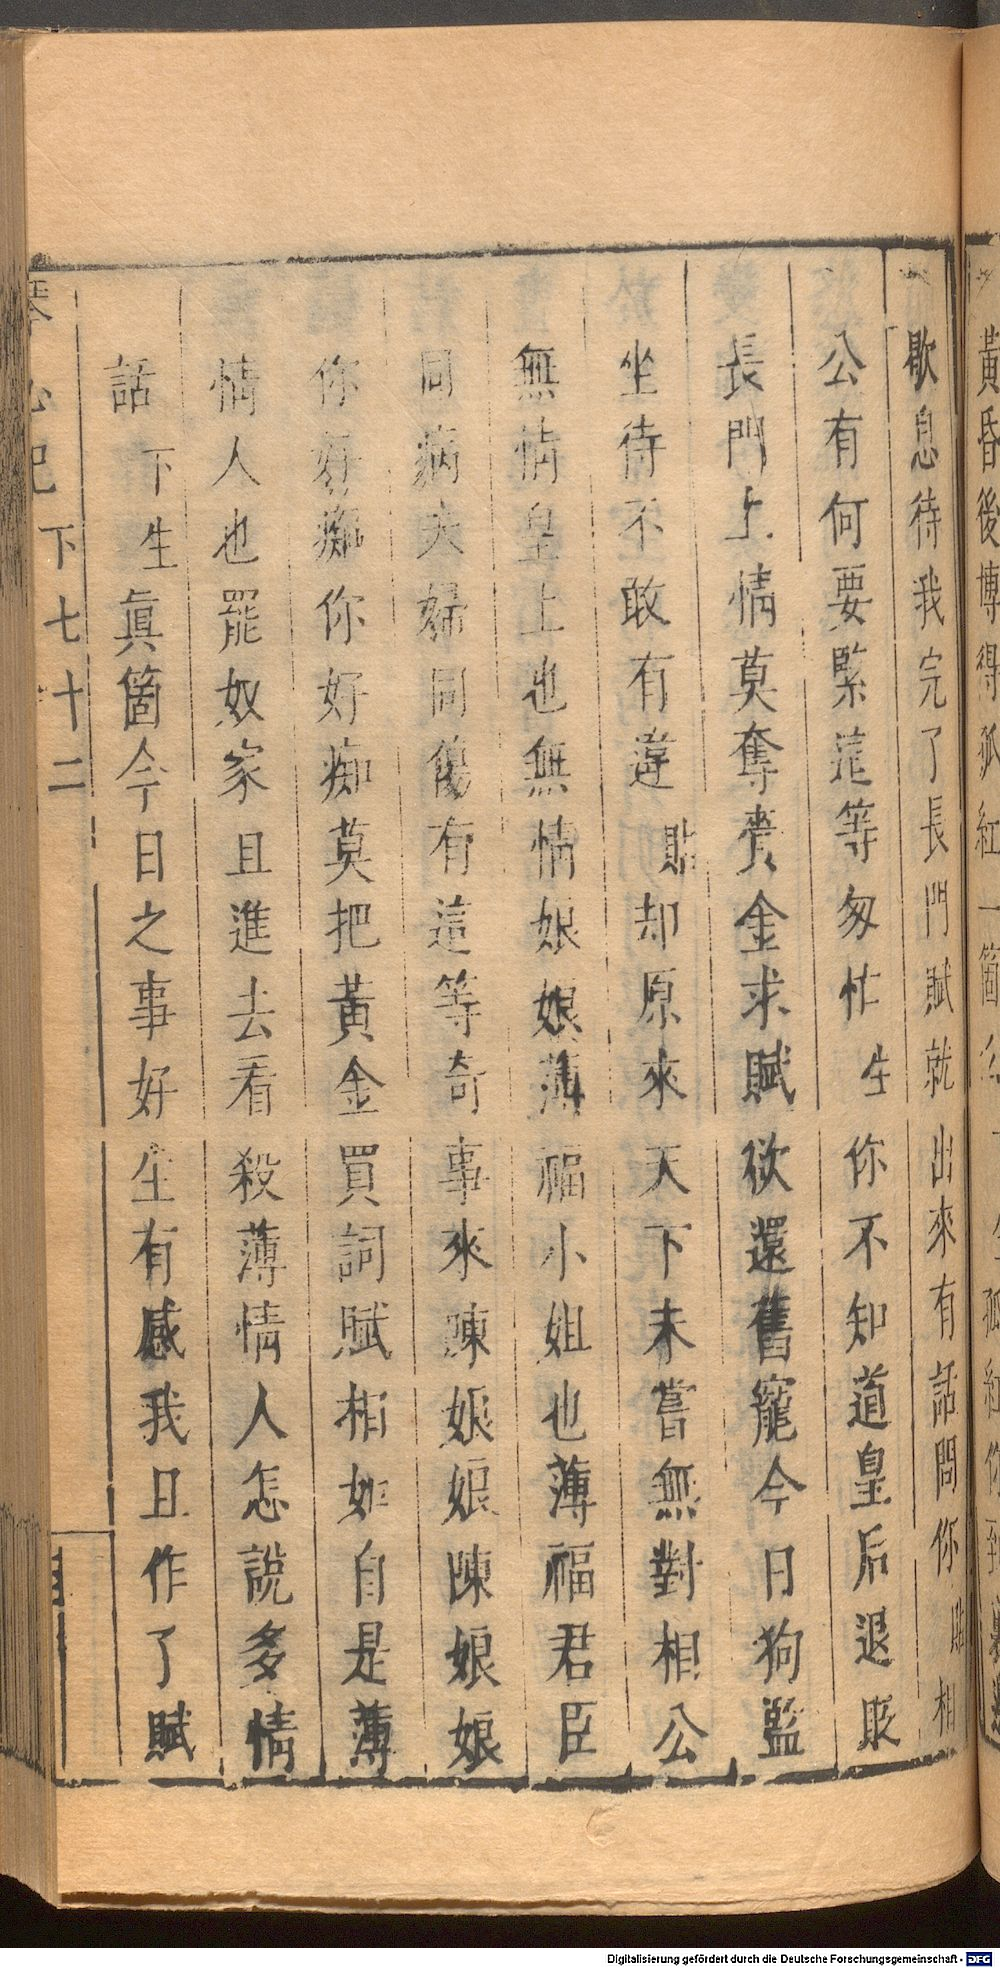 黃昏後博得孤紅一箇
歇息待我完了長門賦就出來有話問你貼相
公有何要緊這等匆忙生你不知道皇后退貶
長門上情莫奪賫金求賦欲還舊寵今日狗監
坐待不敢有違貼却原來天下未嘗無對相公
無情皇上也無情娘娘薄福小姐也薄福君臣
同病夫婦同傷有這等奇事來陳娘娘陳娘娘
你好癡你好痴莫把黃金買詞賦相如自是薄
情人也罷奴家且進去看殺薄情人怎說多情
話下生眞箇今日之事好生有感我且作了賦
琴心記下七十二
Digitalisierung gefördert durch die Deutsche Forschungsgemeinschaft - DFG